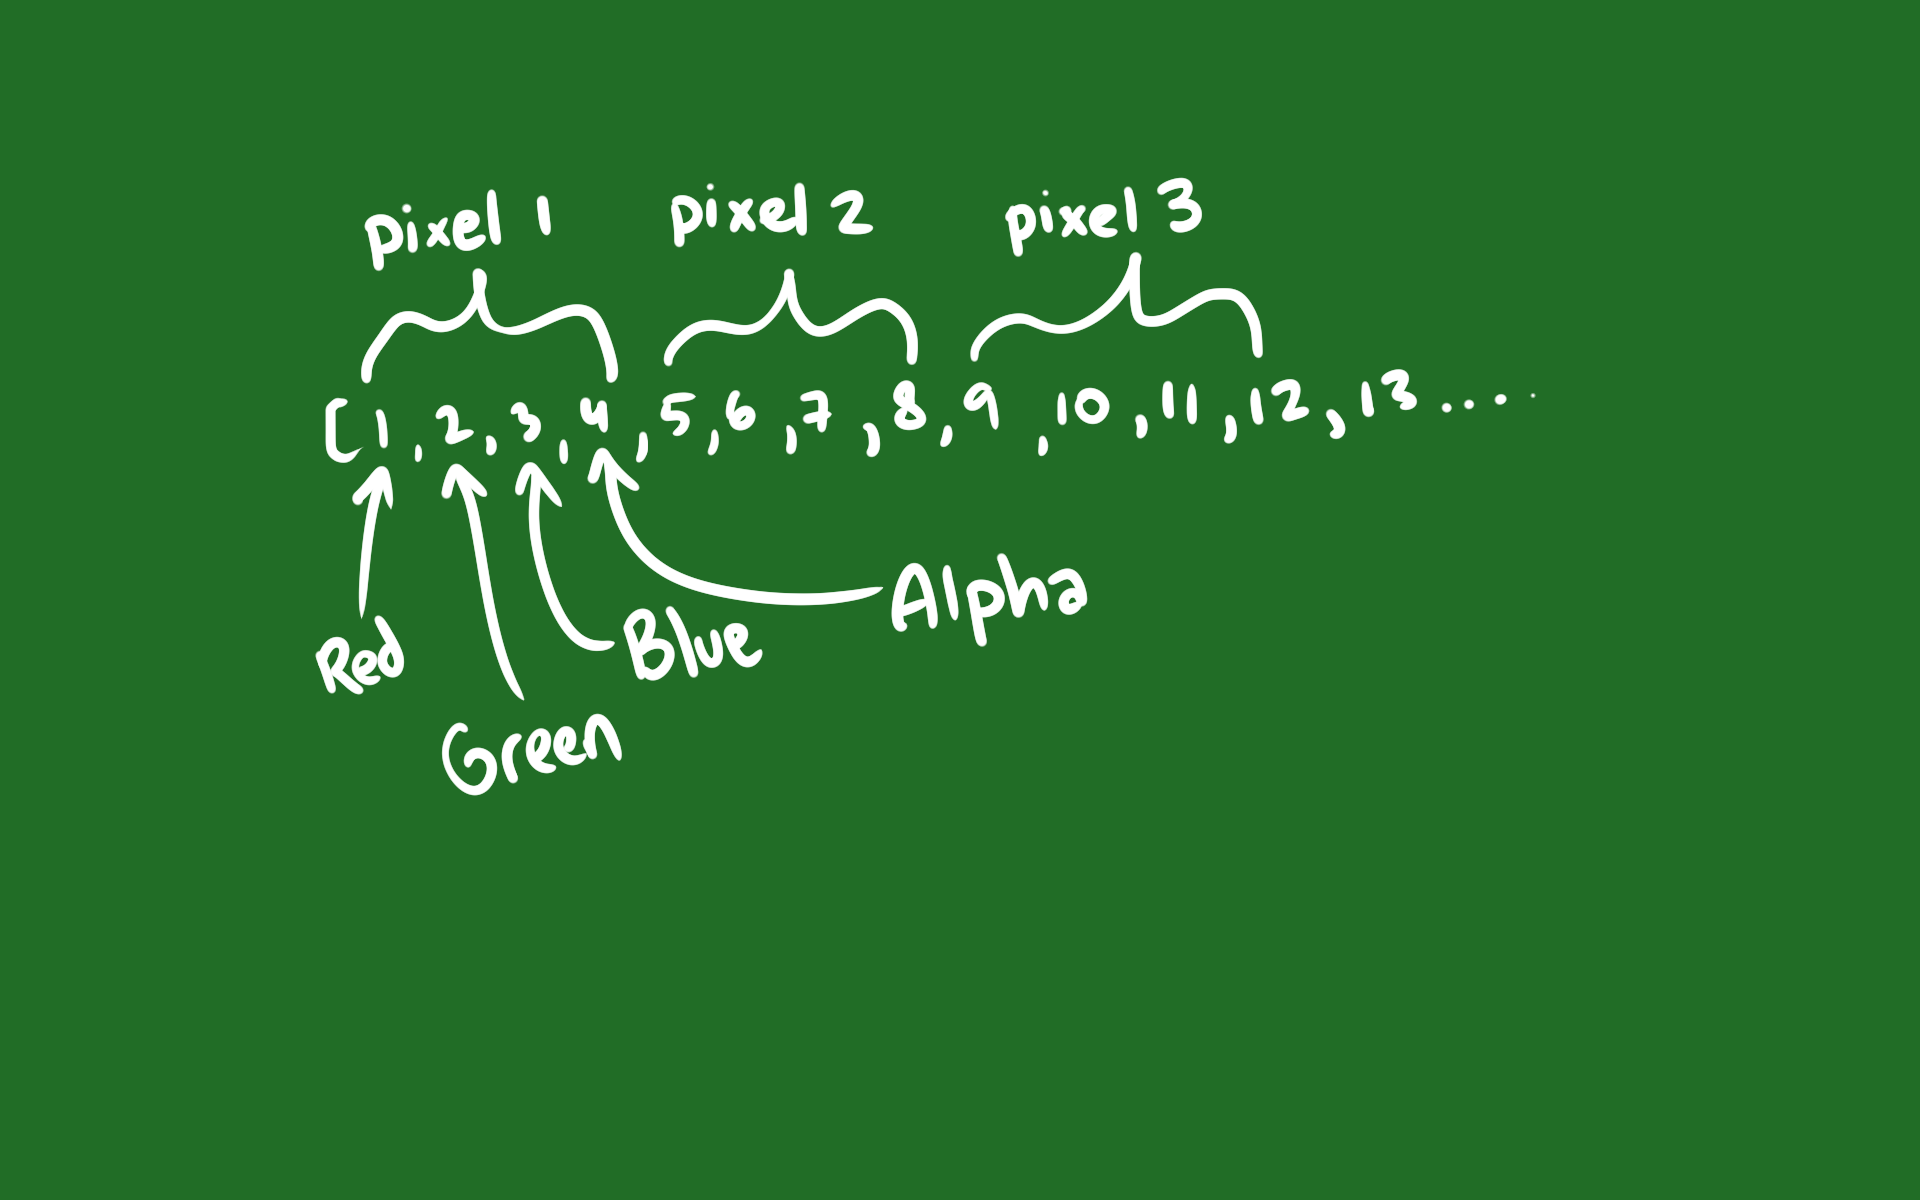 pixel 1 pixel 2 pixel 3
[1,2,3,4,5,6,7,8,9,10,11,12,13....
Red
Green
Blue
Alpha